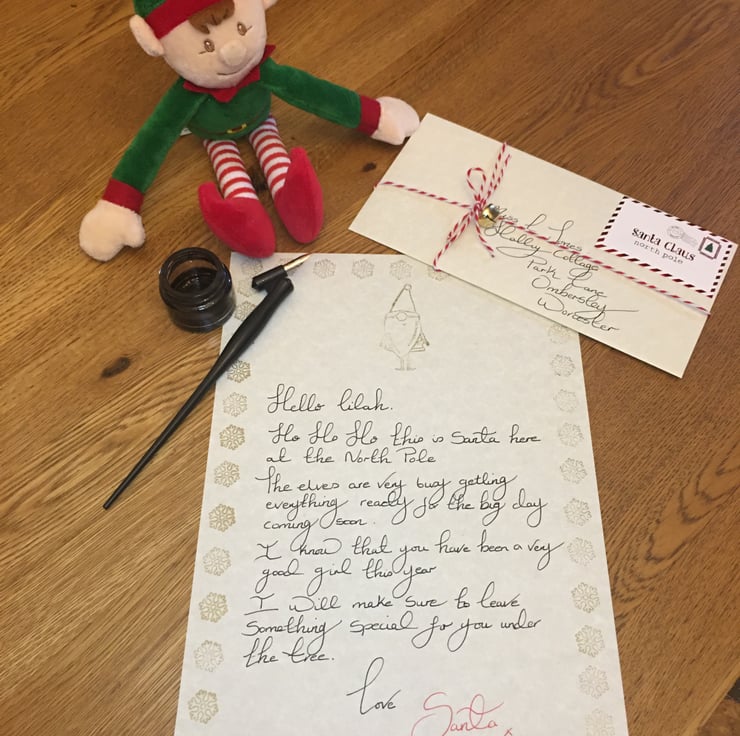 Miss L Jones
Holley Cottage
Park Lane
Ombersley
Worcester
santa claus
north pole
Hello lilah.
Ho Ho Ho this is Santa here
at the North Pole
The elves are very busy getting
everything ready for the big day
coming soon.
I know that you have been a very
good girl this year
I will make sure to leave
something special for you under
the tree.
Love
Santa
x